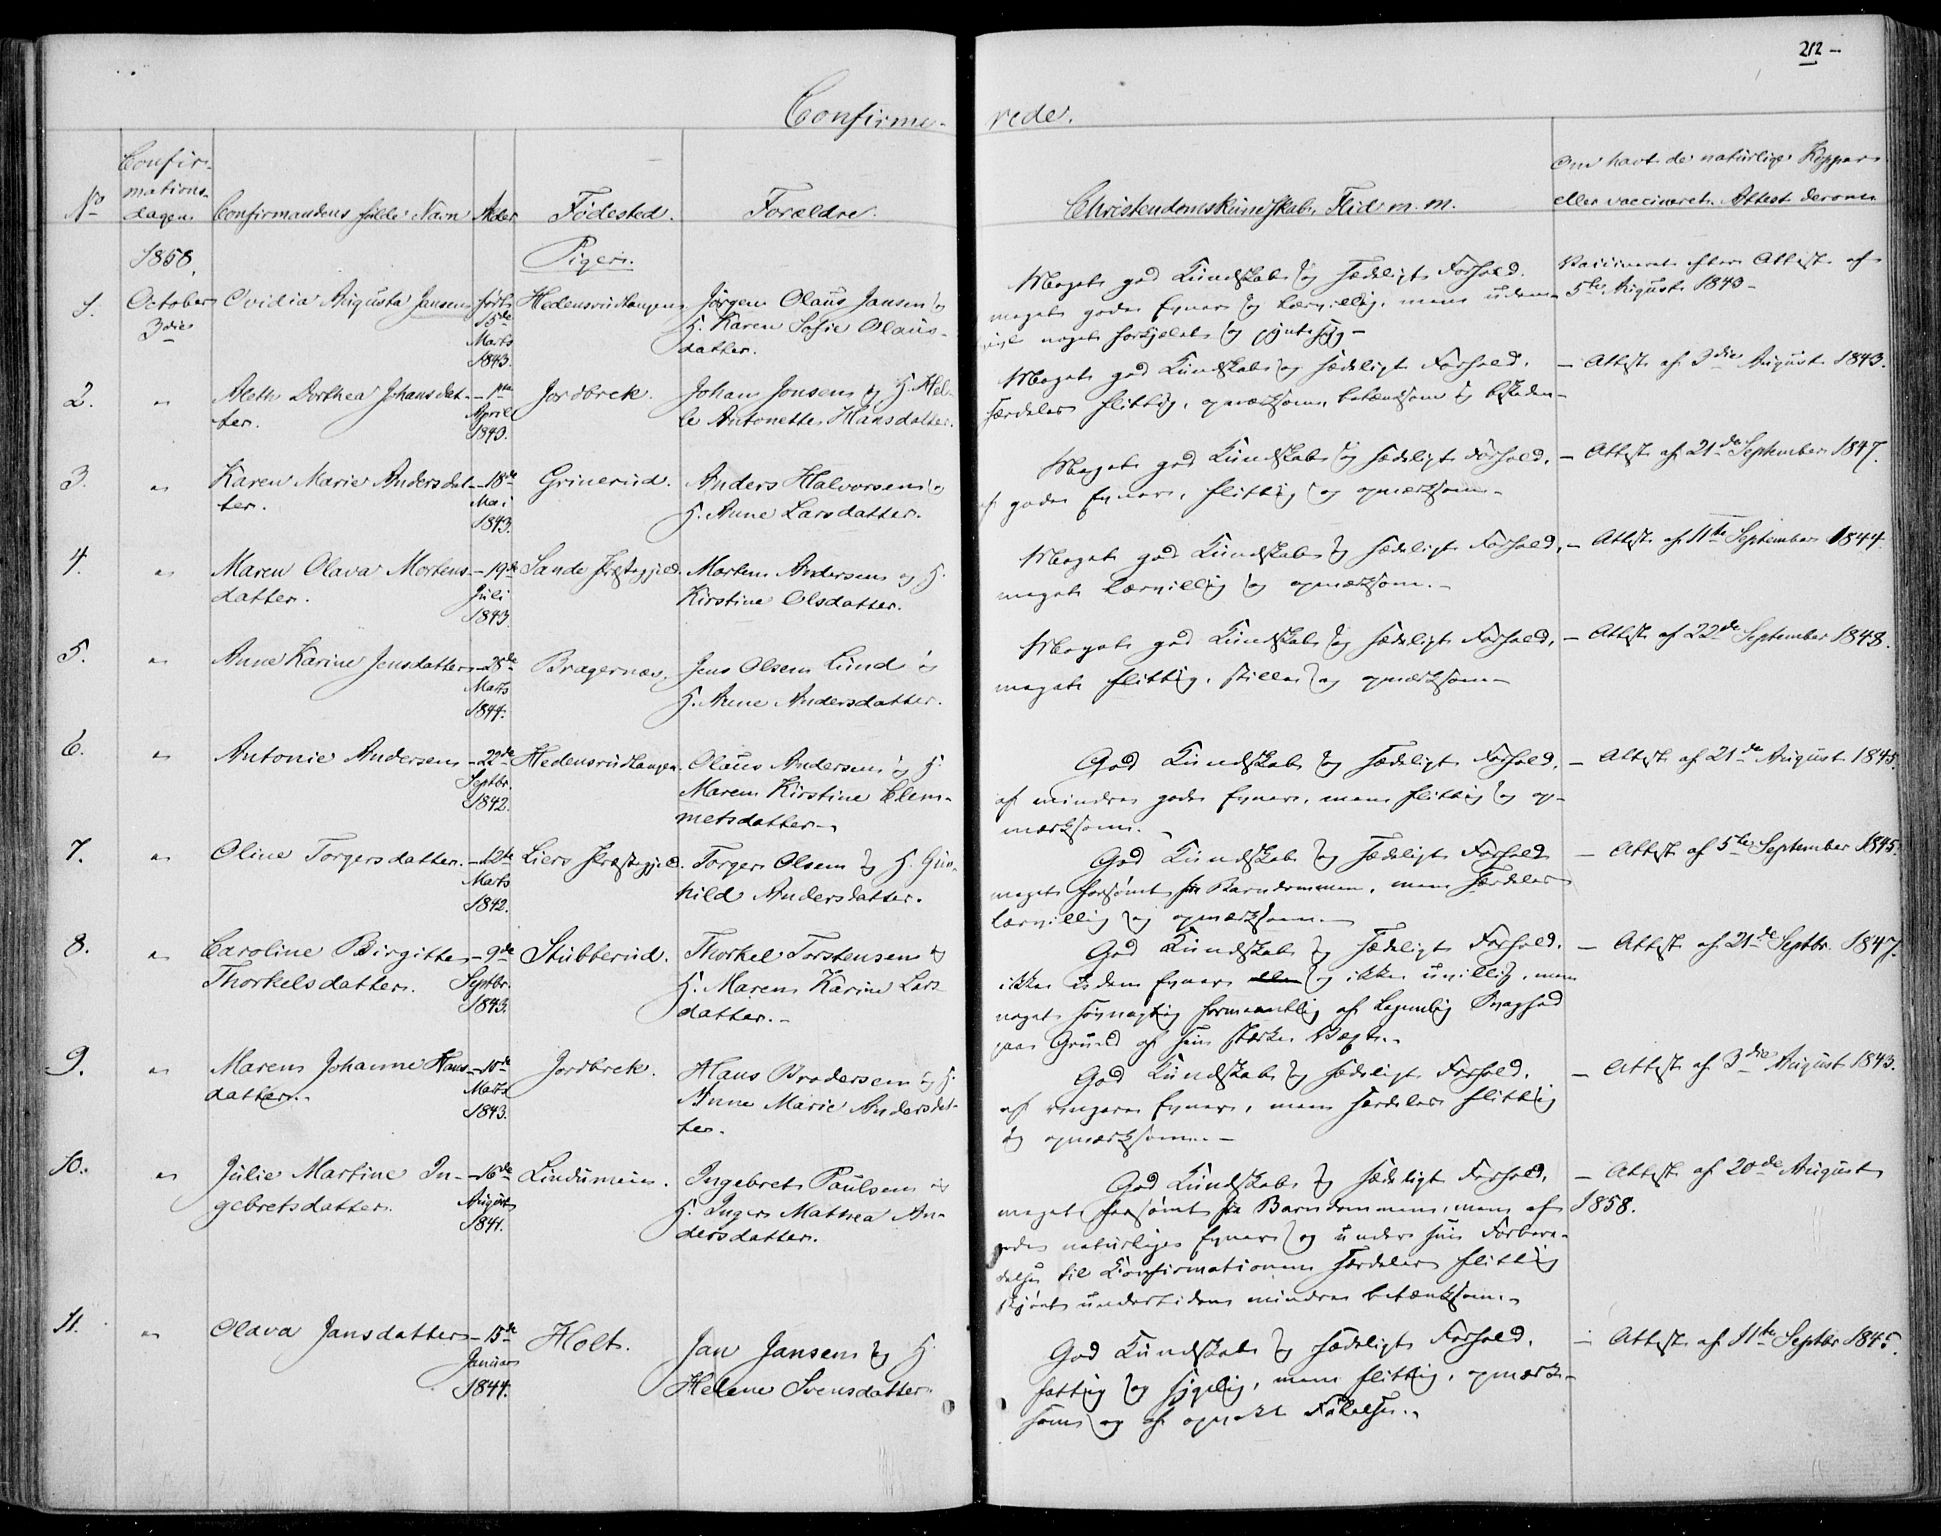 212 -
Confirme- rede.
No
Confir-
mations-
dagen
Confirmandens fulde Navn
Alder
Fødested.
Forældre.
Christendomskundskab, Flid m. m.
Om havt de naturlige Kopper
eller vaccineret. Attest derom
1858.
Piger.
1. October Ovidia Augusta Jensen født Hedensrudtangen Jørgen Olaus Jansen og
3die 15de H. Karen Sofie Olaus-
Marts datter.
1843.
Meget god Kundskab og sædeligt Forhold. Vaccineret efter Attest af
meget gode Evner og lærvillig, men uden- 5te August 1843-
noget forkjelet og
2. " Aleth Dorthea Johansdat- - 1ste Jordbrek. Johan Jonsen og H. Hel-
ter. April le Antonette Hansdatter.
1843.
Meget god Kundskab og sædeligt Forhold. - Attest af 3die August 1843.
særdeles flittig, opmærksom, betænksom og beskeden-
3. " Karen Marie Andersdat- - 18de Grinerud. Anders Halvorsen og
ter. Mai H. Anne Larsdatter.
1843.
Meget god Kundskab og sædeligt Forhold. - Attest af 21de September 1847.
af gode Evner, flittig og opmærksom-
4. " Maren Olava Mortens- - 19de Sande Præstegjeld Morten Andersen og H.
datter. Juli Kirstine Olsdatter.
1843.
Meget god Kundskab og sædeligt Forhold, - Attest af 11te September 1844.
meget lærvillig og opmærksom.-
5. " Anne Karine Jensdatter - 28de Bragernæs. Jens Olsen Lund og
Marts H. Anne Andersdatter.
1844.
Meget god Kundskab og sædeligt Forhold, - Attest af 22de September 1848.
meget flittig, stille og opmærksom-
6. " Antonie Andersen - 22de Hedensrudtangen. Olaus Andersen og H.
Septbr. Maren Kirstine Clem-
1842. metsdatter-
God Kundskab og sædeligt Forhold. - Attest af 21de August 1845.
af mindre gode Evner, men flittig og op-
mærksom.-
7. " Oline Torgersdatter. - 12te Liers Præstegjeld. Torger Olsen og H. Gun-
Marts hild Andersdatter.
1842.
God Kundskab og sædeligt Forhold - Attest af 5te September 1845.
meget forsømt fra Barndommen, men særdeles
lærvillig og opmærksom.-
8. " Caroline Birgitte - 9de Stubberud. Thorkel Torstensen og
Thorkelsdatter. Septbr. H. Maren Karine Lars-
1843. datter.-
God Kundskab og sædeligt Forhold. - Attest af 21de Septbr. 1847.
ikke uden Evner og ikke uvillig, men
noget søvnagtig formeentlig af legemlig Svaghed
paa Grund af sin stærke Væxt.-
9. " Maren Johanne Hans- - 10de Jordbrek. Hans Brodersen og H.
datter.- Marts Anne Marie Andersdat-
1843. ter.
God Kundskab og sædeligt Forhold. - Attest af 3die August 1843.
af ringere Evner, men særdeles flittig
og opmærksom.-
10. " Julie Martine In- - 16de Lindumeie. Ingebret Paulsen og
gebretsdatter. August H. Inger Mathea An-
1841. dersdatter.
God Kundskab og sædeligt Forhold, - Attest af 20de August
meget forsømt fra Barndommen, men af 1858.
gode naturlige Evner og under sin Forbere-
delse til Confirmationen særdeles flittig
skjønt undertiden mindre betænksom.-
11. " Olava Jansdatter - 15de Holt. Jan Jansen og H.
Januar Helene Svensdatter
1844.
God Kundskab og sædeligt Forhold. - Attest af 11te Septbr 1845.
fattig og sygelig, men flittig, opmærk-
som og af opvakt Følelse.-